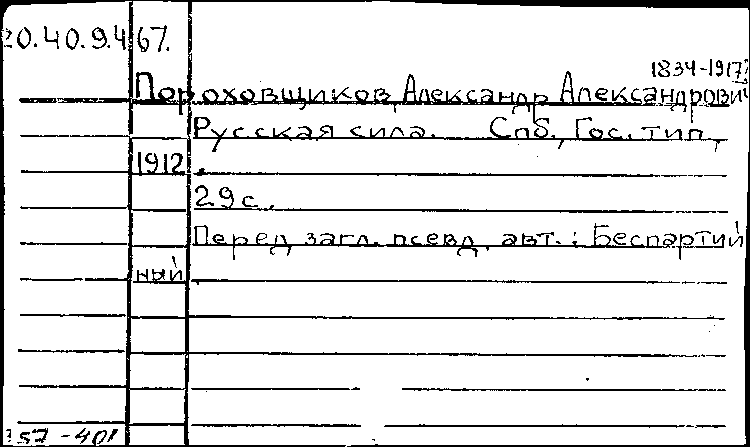 20.40.9.467.
1834-1917?
Пороховщиков, Александр Александрович
Русская сила. Спб., Гос. тип.,
1912.
29 с.
Перед загл. псевд. авт.: Беспартий
ный
357-401